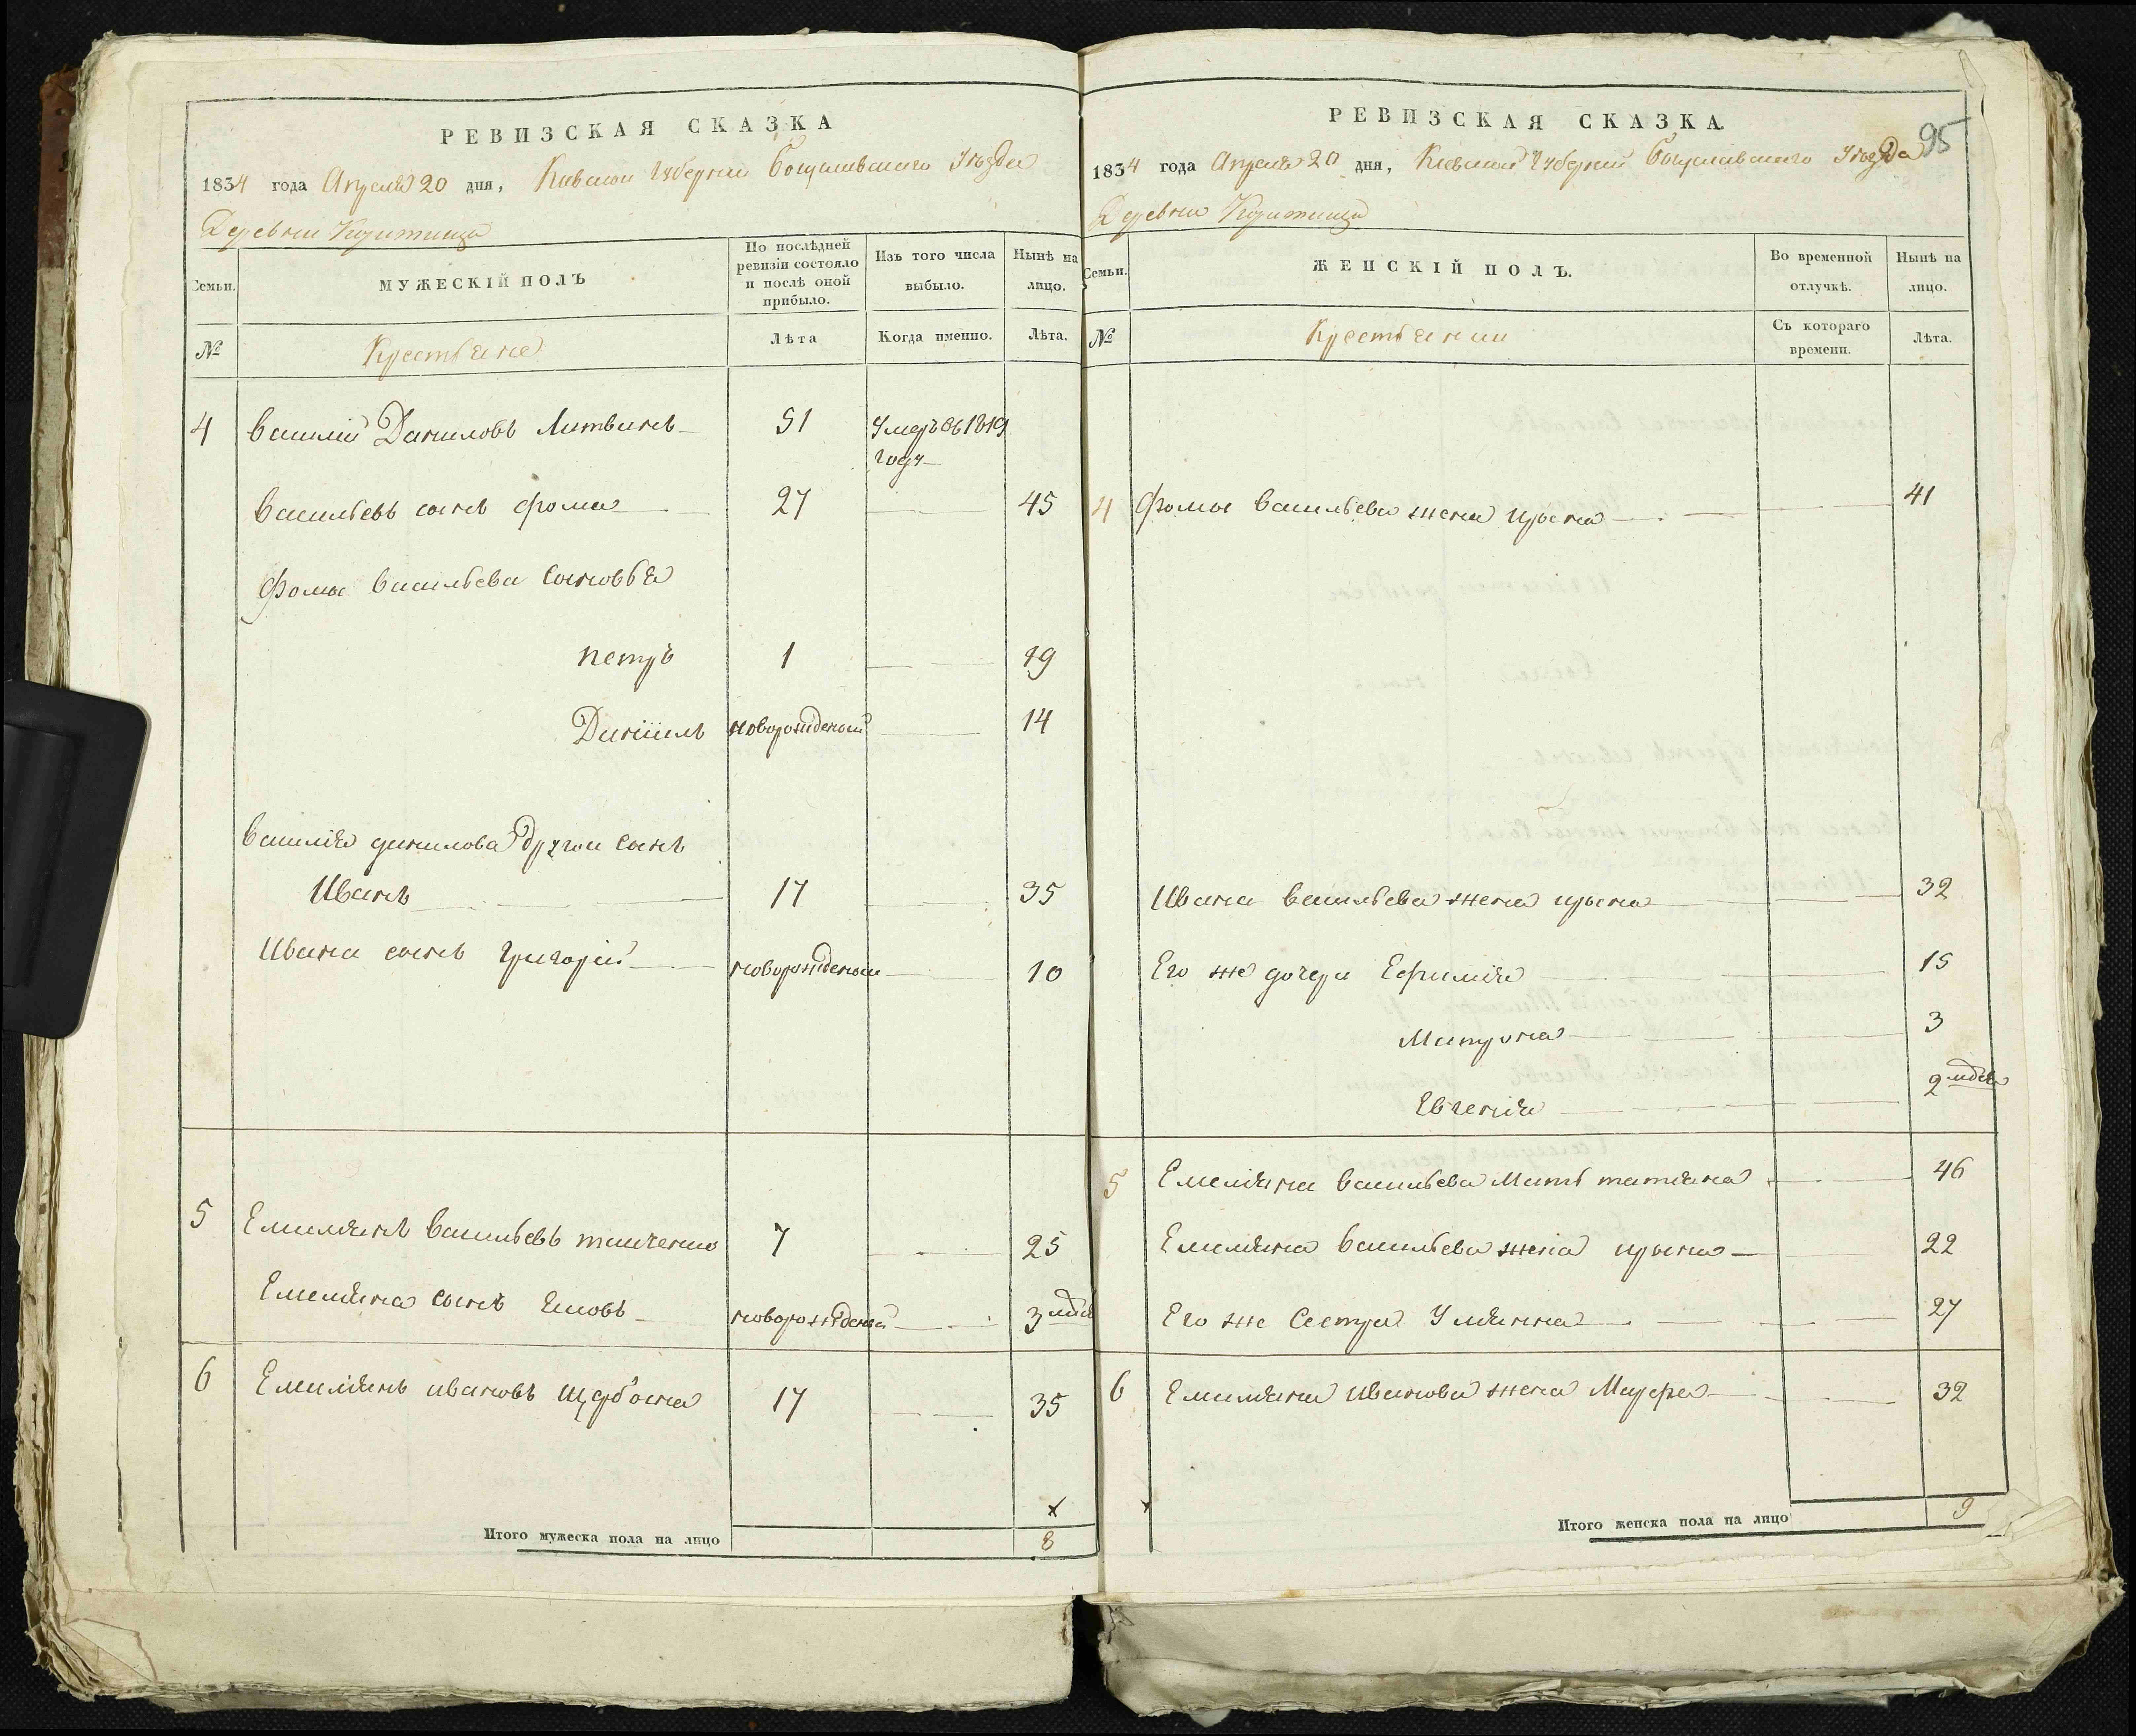 РЕВИЗСКАЯ СКАЗКА
1834 года Апреля 20 дня, Киевской Губернии Богуславского Уѣзда
Деревни
Семьи.
МУЖЕСКІЙ ПОЛЪ
По послѣдней ревизіи состояло и послѣ оной прибыло.
Изъ того числа выбыло.
Нынѣ на лицо.
№
Крестьяне
Лѣта
Когда именно.
Лѣта.
4 Василій Даниловъ Литвинъ 51 Умеръ въ 1819
году
Васильевъ сынъ Фома 27 45
Фомы Васильева сыновья
Петръ 1 19
Даніилъ новорожденой 14
Василія данилова другой сынъ
Иванъ 17 35
Ивана сынъ Григорій новорожденой 10
5 Емилянъ Васильевъ 7 25
Емеляна сынъ новорожденой 3 мдся
6 Емилянъ ивановъ 17 35
х
Итого мужеска пола на лицо 8
95
РЕВИЗСКАЯ СКАЗКА.
1834 года Апреля 20 дня, Киевской Губерніи Богуславского Уѣзда
Деревни
Семьи.
ЖЕНСКІЙ ПОЛЪ.
Во временной отлучкѣ.
Нынѣ на лицо.
№
Крестьянки
Съ котораго времени.
Лѣта.
4 Фомы Васильева жена ирына 41
Ивана Васильева жена ирына 32
Его же дочери Ефимія 15
Матрона 3
Евгенія 2 мдся
5 Емеляна Васильева Мать татяна 46
Емеляна Васильева жена ирына 22
Его же Сестра Улянна 27
6 Емиляна Иванова жена Марфа 32
х
Итого женска пола на лицо 9